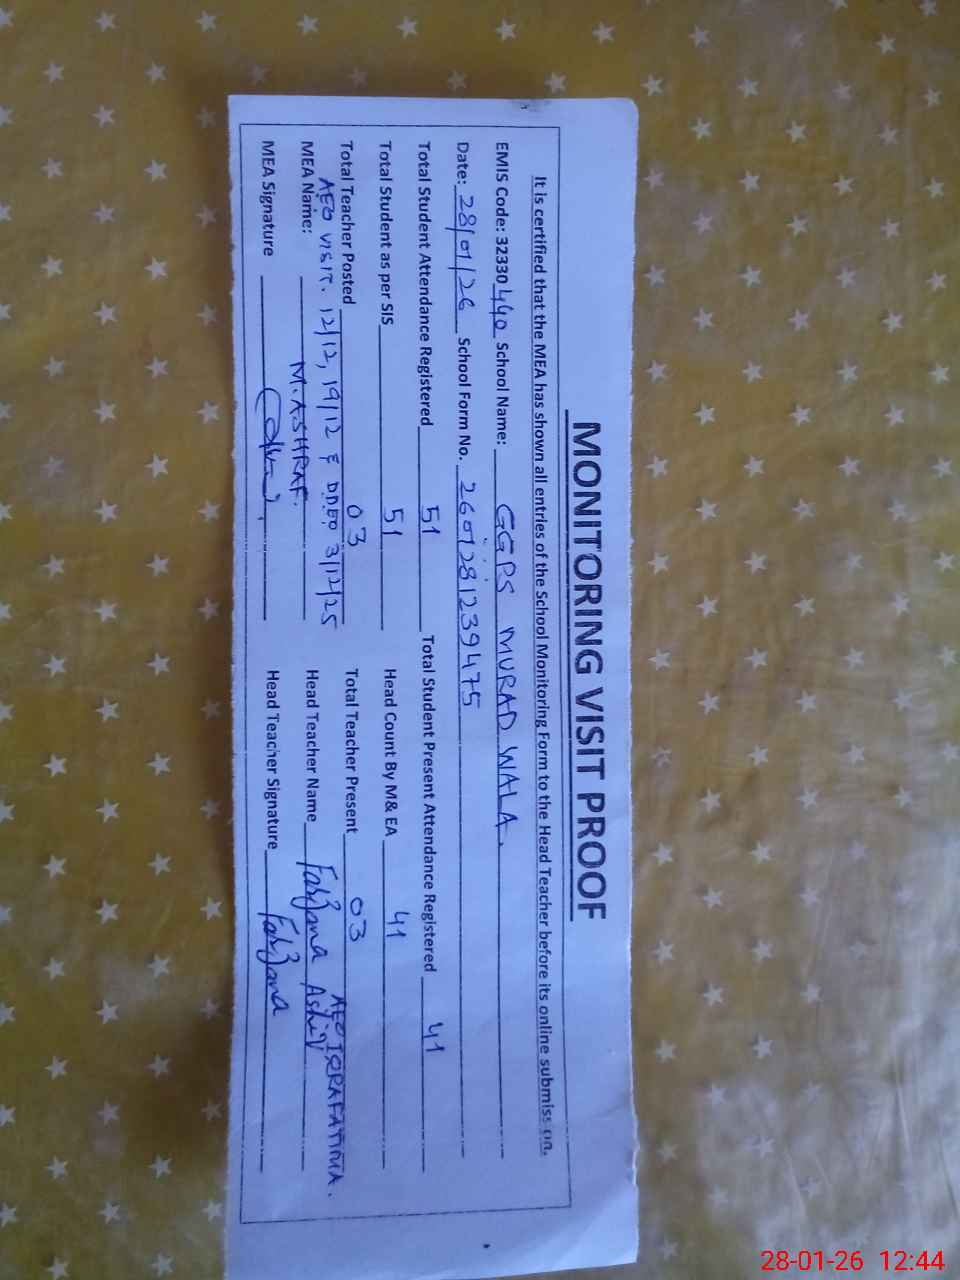 MONITORING VISIT PROOF
It is certified that the MEA has shown all entries of the School Monitoring Form to the Head Teacher before its online submission.
EMIS Code: 32330440 School Name: GGPS MURAD WALA.
Date: 28/01/26 School Form No. 2601281239475
Total Student Attendance Registered 51 Total Student Present Attendance Registered 41
Total Student as per SIS 51 Head Count By M& EA 41
Total Teacher Posted 03 Total Teacher Present 03
AEO VISIT. 12/12, 19/12 & DDEO 3/12/25 AEO IQRA FATIMA.
MEA Name: M. ASHRAF. Head Teacher Name Farzana Ashiq
MEA Signature Head Teacher Signature Farzana
28-01-26 12:44